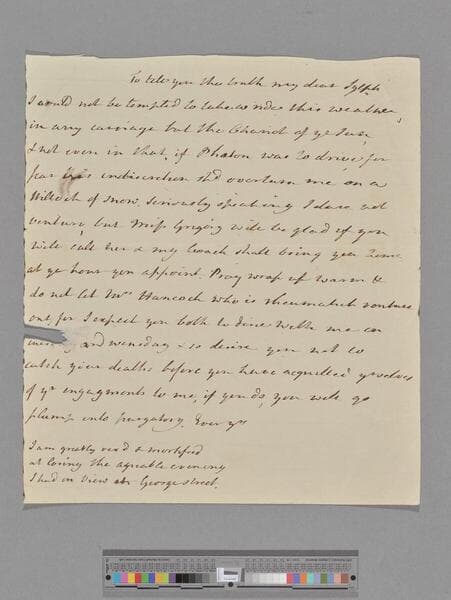 To tell you the truth my dear Sylph
I would not be tempted to take a ride this weather,
in any carriage but the Chariot of ye Sun,
& not even in that, if Phaton was to drive, for
fear his indiscretion shd overturn me on a
Hillock of snow. seriously speaking I dare not
venture, but Miss Gregory will be glad if you
will call her & my Coach shall bring you home
at ye hour you appoint. Pray wrap up warm &
do not let Mrs Hancock who is rheumatick venture
out, for I expect you both to dine with me on
and wensday & so desire you not to
catch your deaths before you have acquitted yrselves
of yr engagements to me, if you do, you will go
plump into purgatory. Ever yrs
I am greatly vex'd & mortified
at losing the agreable evening
I had in View at George street.